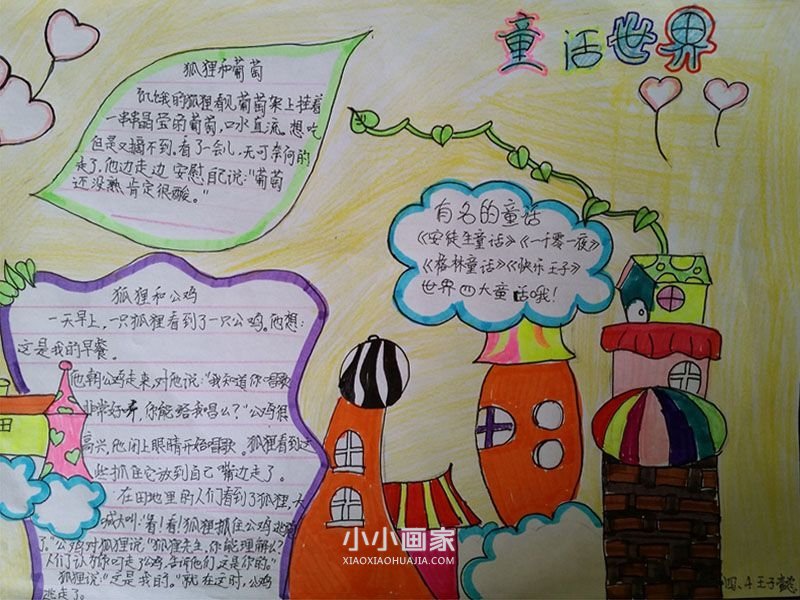 童话世界
狐狸和葡萄
饥饿的狐狸看见葡萄架上挂着
一串串晶莹的葡萄,口水直流。想吃
但是又摘不到。看了一会儿,无可奈何的
走了,他边走边安慰自己说:"葡萄
还没熟肯定很酸。"
有名的童话
《安徒生童话》《一千零一夜》
《格林童话》《快乐王子》
世界四大童话哦!
狐狸和公鸡
一天早上,一只狐狸看到了一只公鸡。他想:
这是我的早餐。
他朝公鸡走来,对他说:"我知道你唱歌
非常好听,你能给我唱么?"公鸡很
高兴,他闭上眼睛开始唱歌。狐狸看到这
些抓住它放到自己嘴边走了。
在田地里的人们看到了狐狸,大
喊大叫:"看!看!狐狸抓住公鸡逃
了。"公鸡对狐狸说:"狐狸先生,你能理解么?
人们认为你叼走了公鸡,告诉他们这是你的。"
狐狸说:"这是我的。"就在这时,公鸡
逃走了。
小小画家
XIAOXIAOHUAJIA.COM
四、4.王子